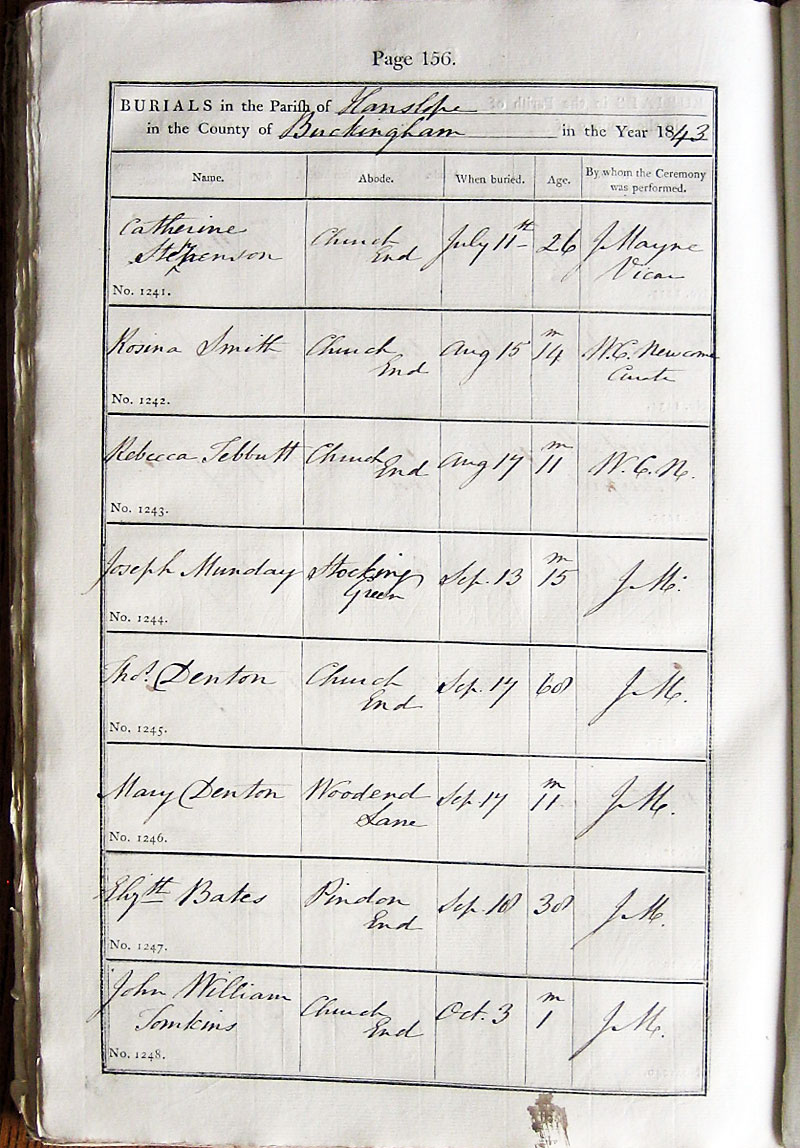 Page 156.
BURIALS in the Parish of Hanslope
in the County of Buckingham in the Year 1843
Name. Abode. When buried. Age. By whom the Ceremony was performed.
Catherine Church July 11th 26 J Mayne
Stephenson End Vicar
No. 1241.
Rosina Smith Church Aug 15 m 14 W.C. Newcome
End Curate
No. 1242.
Rebecca Tebbutt Church Aug 17 m 11 W.C.N.
End
No. 1243.
Joseph Munday Stocking Sep. 13 m 15 J M.
Green
No. 1244.
Thos. Denton Church Sep. 17 68 J M.
End
No. 1245.
Mary Denton Woodend Sep. 17 m 11 J M.
Lane
No. 1246.
Elizth Bates Pindon Sep. 18 38 J M.
End
No. 1247.
John William Church Oct. 3 m 1 J M.
Tomkins End
No. 1248.